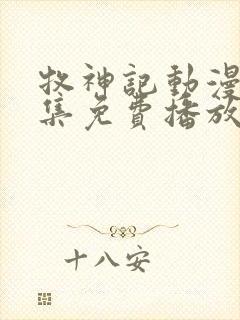 牧神記動漫
集免費播放
十八安